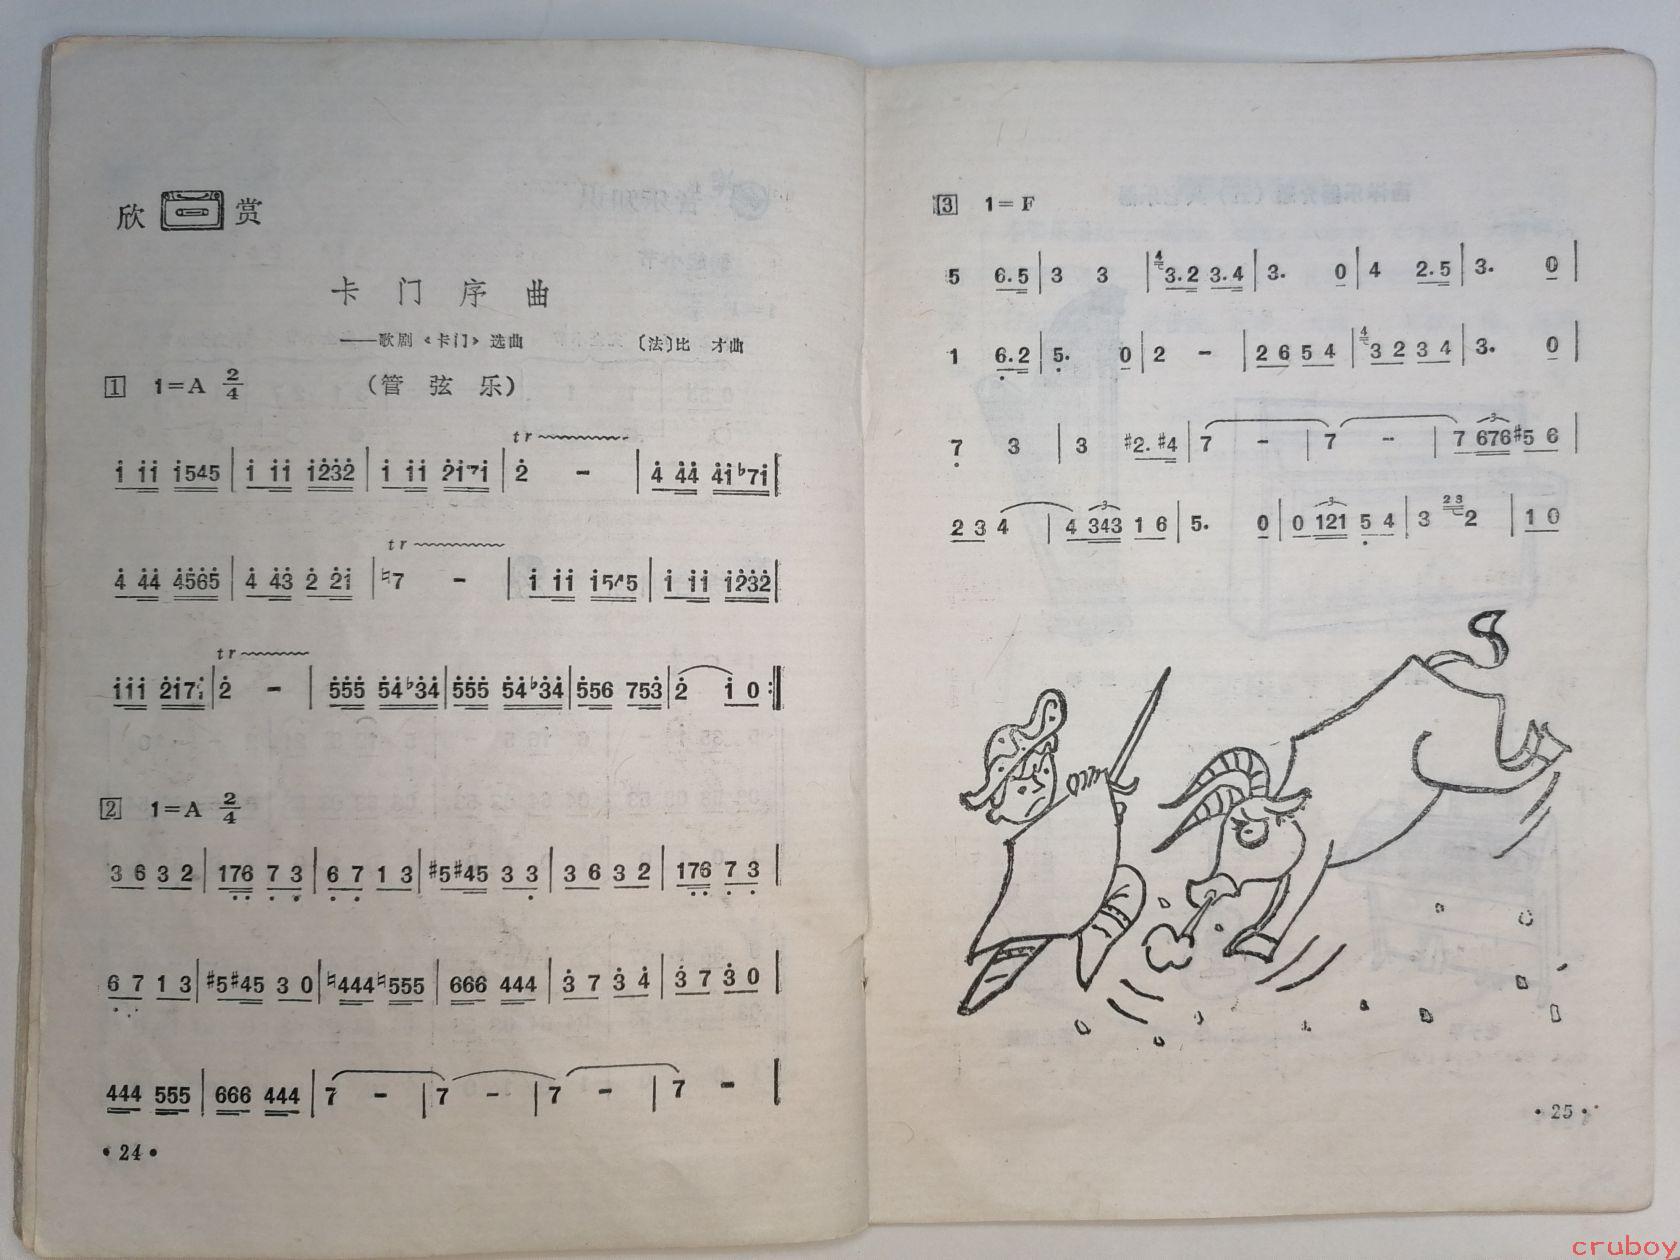 欣 赏
卡 门 序 曲
——歌剧《卡门》选曲 〔法〕比 才曲
1 1=A 2/4 (管 弦 乐)
tr
i̇ i̇i̇ i̇545 | i̇ i̇i̇ i̇2̇3̇2̇ | i̇ i̇i̇ 2̇i̇7i̇ | 2̇ – | 4̇ 4̇4̇ 4̇i̇♭7i̇ |
tr
4̇ 4̇4̇ 4̇5̇6̇5̇ | 4̇ 4̇3̇ 2̇ 2̇i̇ | ♮7 – | i̇ i̇i̇ i̇545 | i̇ i̇i̇ i̇2̇3̇2̇ |
tr
i̇i̇i̇ 2̇i̇7i̇ | 2̇ – | 5̇5̇5̇ 5̇4̇♭3̇4̇ | 5̇5̇5̇ 5̇4̇♭3̇4̇ | 5̇56 753̇ | 2̇ i̇ 0 :‖
2 1=A 2/4
3 6 3 2 | 17̣6̣ 7̣ 3̣ | 6̣ 7̣ 1 3 | #5#45 3 3̣ | 3 6 3 2 | 17̣6̣ 7̣ 3̣ |
6̣ 7̣ 1 3 | #5#45 3 0 | ♮444♮555 | 666 444 | 3̇ 7 3̇ 4̇ | 3̇ 7 3̇ 0 |
444 555 | 666 444 | 7 – | 7 – | 7 – | 7 – |
·24·
3 1=F
5 6.5 | 3 3 | 4 3.2 3.4 | 3. 0 | 4 2.5 | 3. 0 |
1 6̣.2 | 5̣. 0 | 2 – | 2 6 5 4 | 4 3 2 3 4 | 3. 0 |
7̣ 3 | 3 #2.#4 | 7 – | 7 – | 7 676 #5 6 |
2 3 4 | 4 343 1 6 | 5. 0 | 0 121 5̣ 4 | 3 23 2 | 1 0
·25·
cruboy